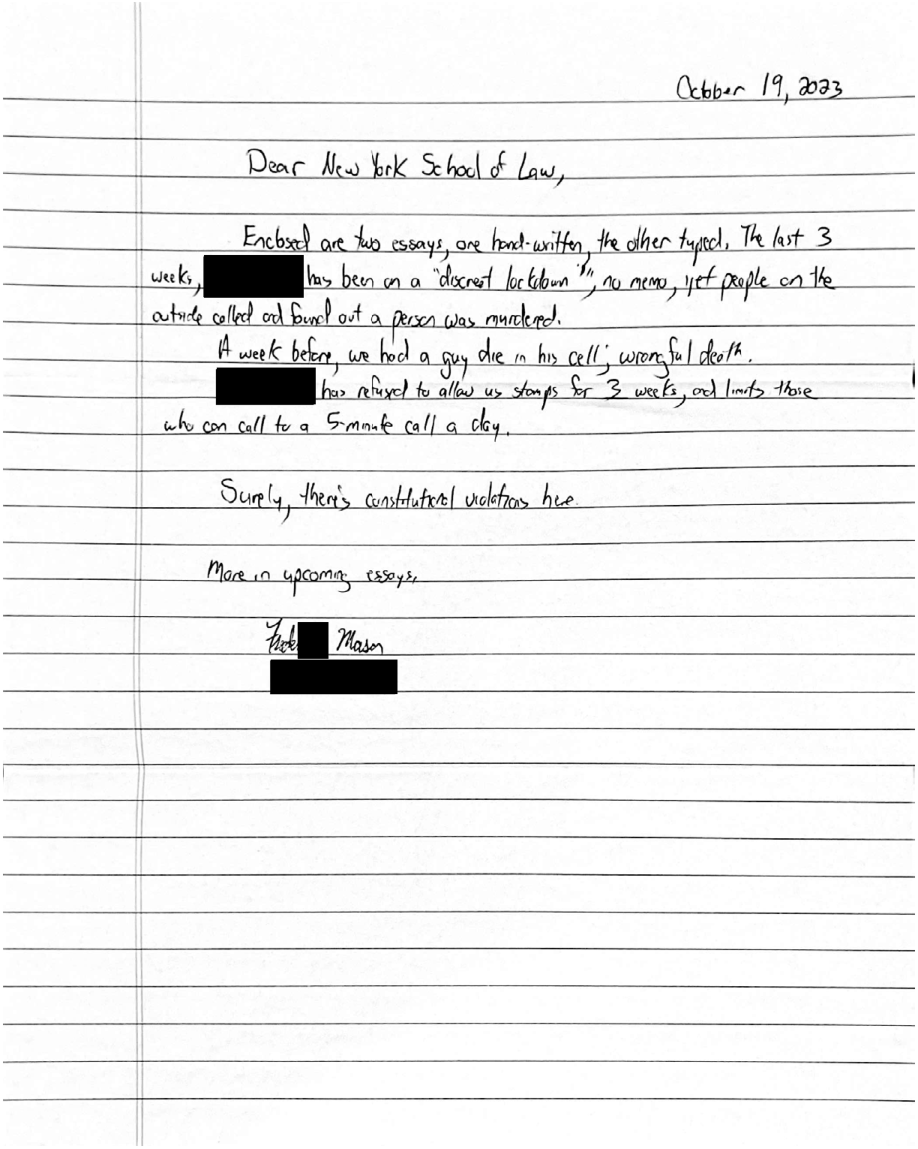 October 19, 2023
Dear New York School of Law,
Enclosed are two essays, one hand-written, the other typed. The last 3
weeks, has been on a "discreet lockdown", no memo, yet people on the
outside called and found out a person was murdered.
A week before, we had a guy die in his cell; wrongful death.
has refused to allow us stamps for 3 weeks, and limits those
who can call to a 5-minute call a day.
Surely, there's constitutional violations here.
More in upcoming essays,
Mason